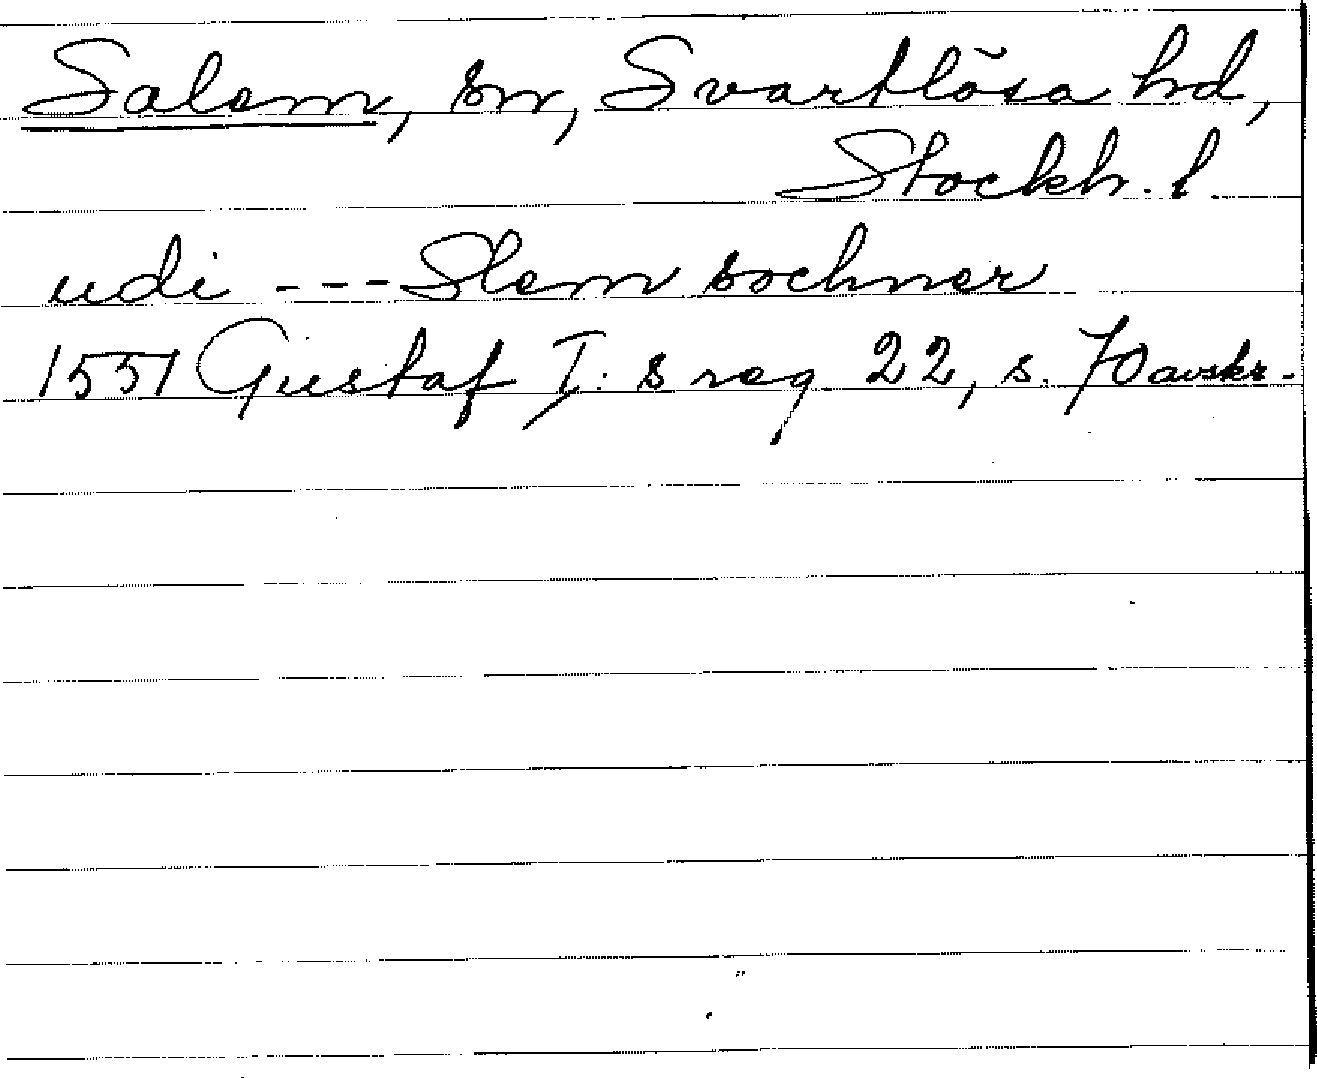 Salem, sn, Svartlösa hd,
Stockh. l.
udi --- Slem sochner
1551 Gustaf I:s reg 22, s. 70 avskr.